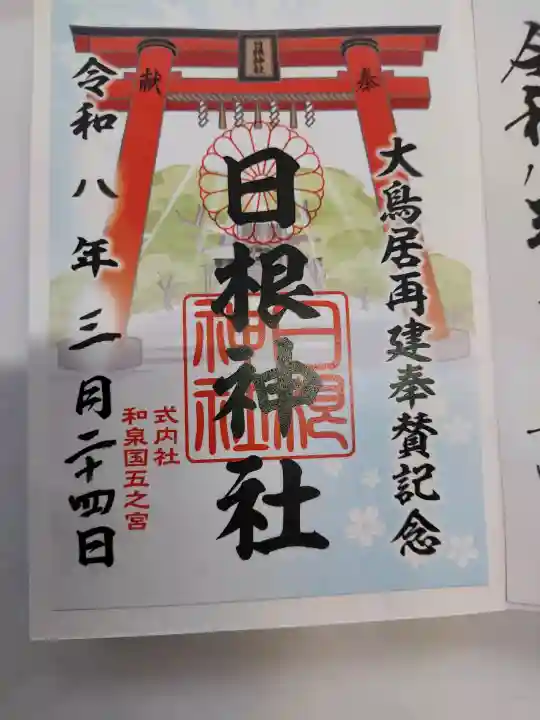 大鳥居再建奉賛記念
日根神社
奉
献
日根神社
日根
神社
式内社
和泉国五之宮
令和八年三月二十四日
令和八年